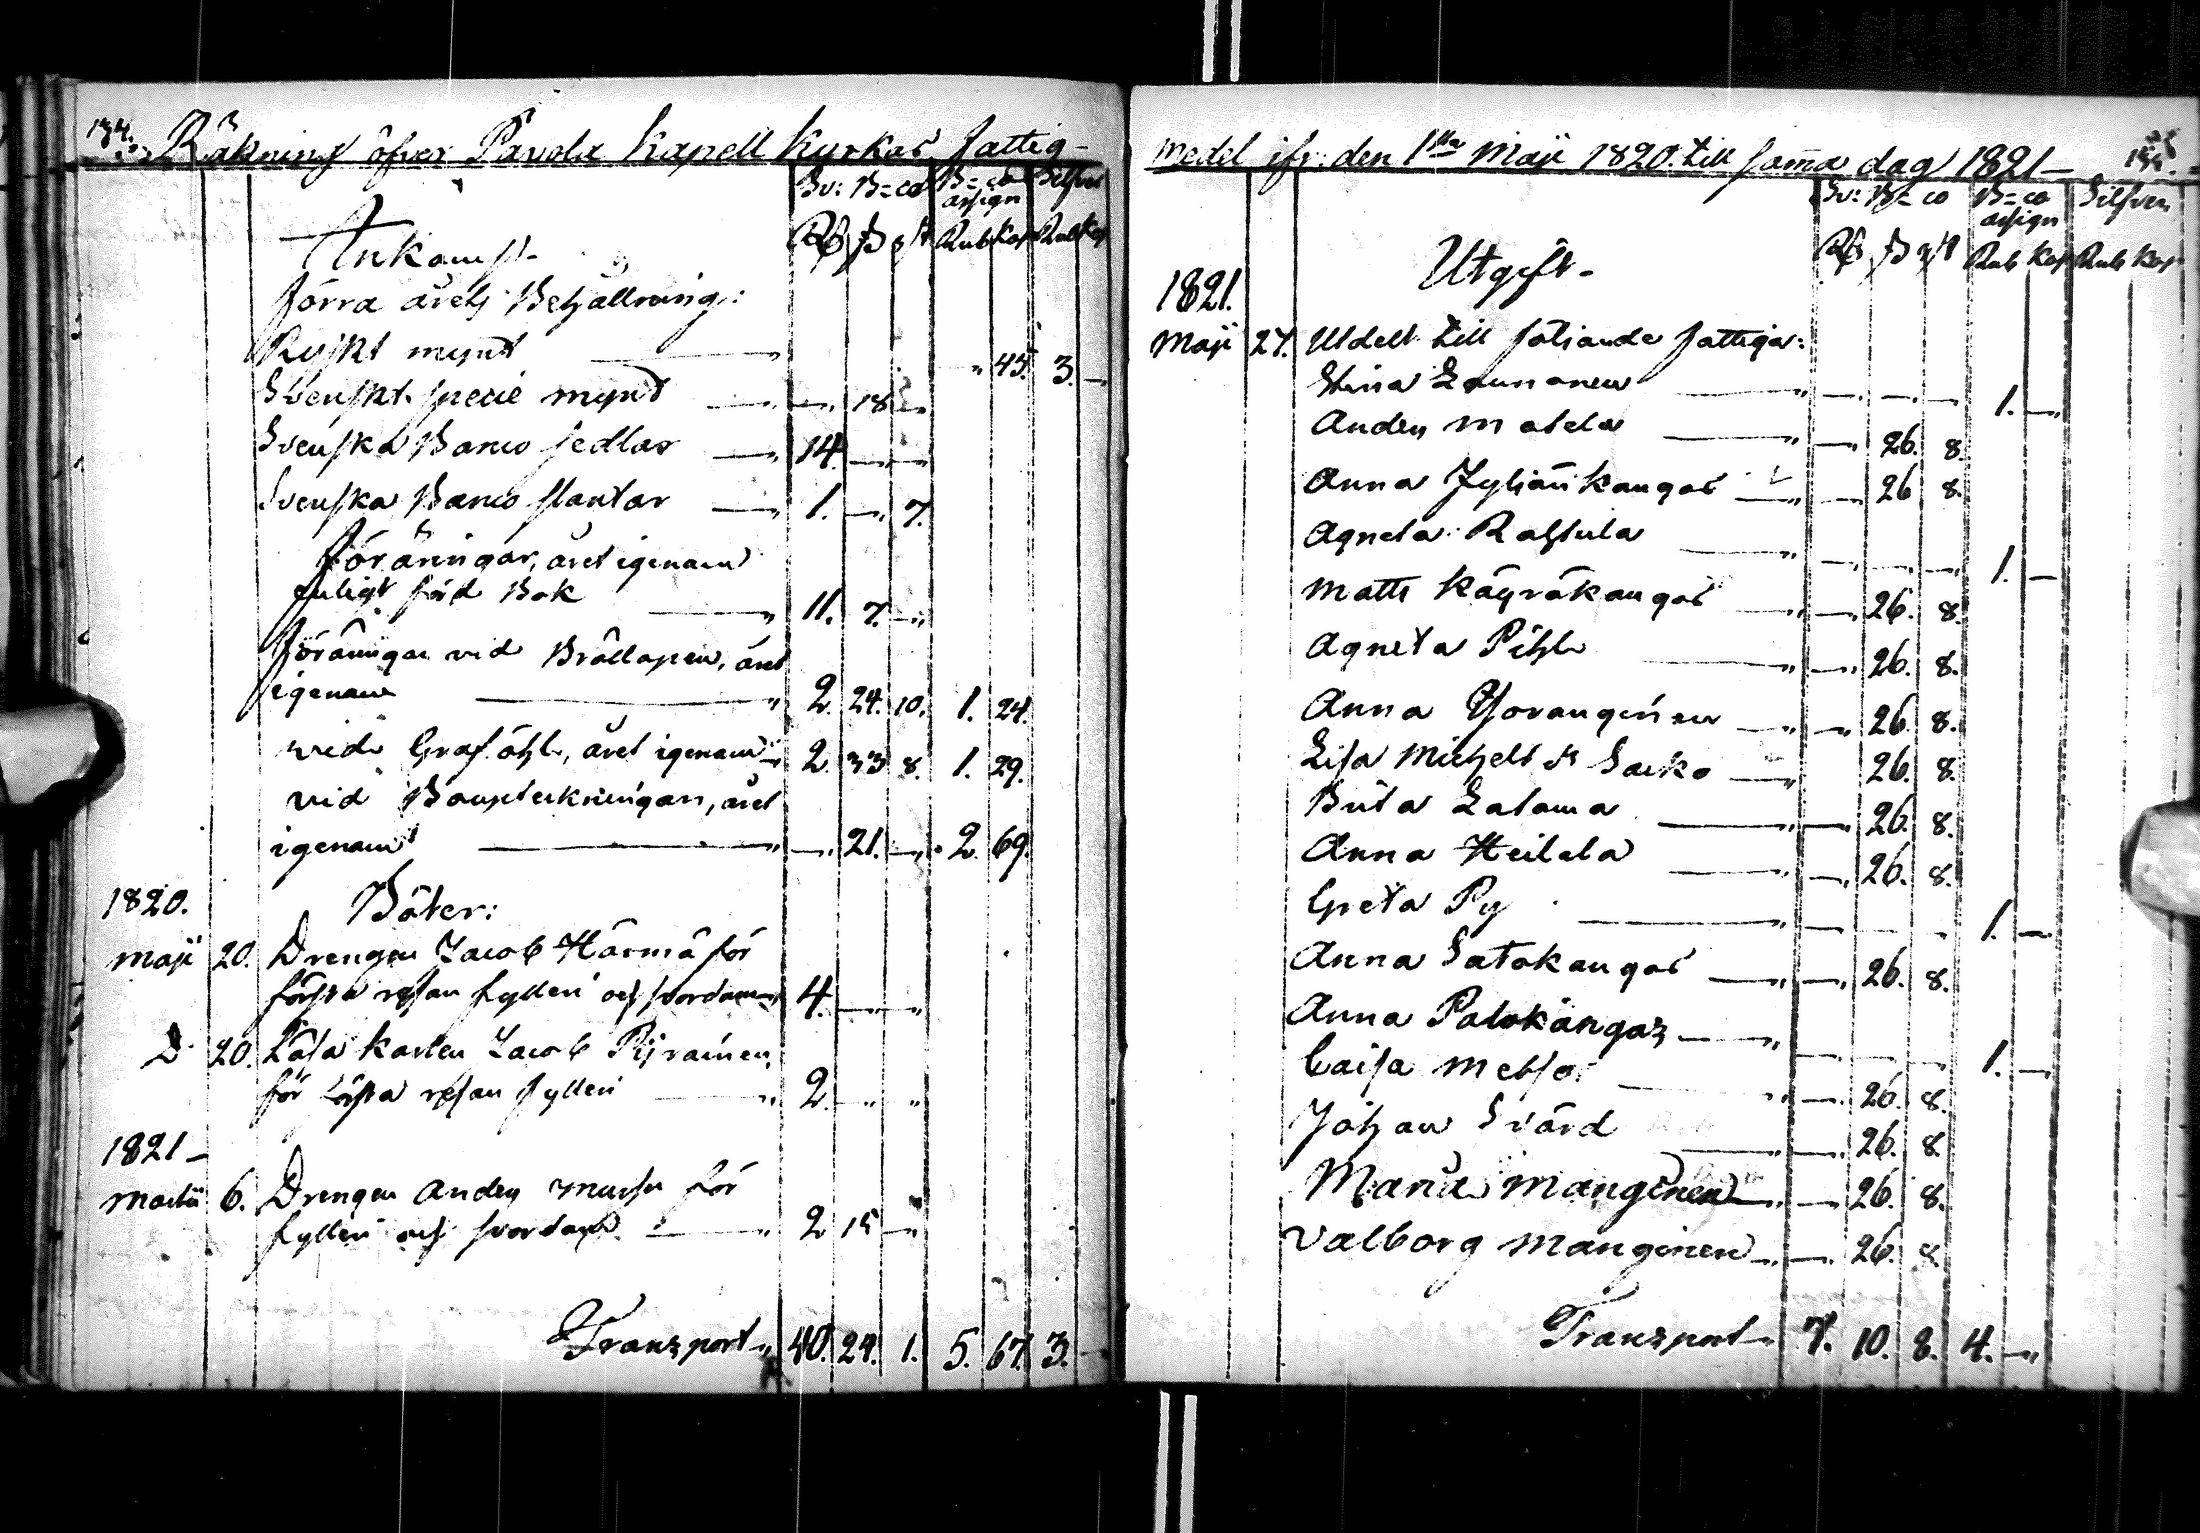 134. Räkning öfver Pavola Kapell Kyrkas fattig-
Sv: B=co B=co assign Silfver
Rd ß rst Rub Kop Rub Kop
Inkomst-
förra årets Behållning:
Ryskt mynt — " 45. 3. —
Svenskt specie mynt — — 18 —
Svenska Banco sedlar — 14. — —
Svenska Banco slantar — 1. — 7.
föräringar, året igenom
enligt förd Bok — 11. 7. —
föräringar vid Bröllopen, året
igenom — 2. 24. 10. 1. 24.
vid Grafölen, året igenom — 2. 33 8. 1. 29.
vid Barnsteckningar, året
igenom — — 21. — 2. 69.
1820. Böter:
Maji 20. Drengen Jacob Härmä för
första resan fylleri och svordom 4. — —
D 20. Lösa karlen Jacob Pyrainen,
för första resan fylleri — 2. " "
1821 –
Martii 6. Drengen Anders Mursu för
fylleri och svordom — 2 15 —
Transport 40. 24. 1. 5. 67. 3. —
medel ifr: den 1sta Maji 1820. till samma dag 1821 — 135.
Sv: B=co B=co assign Silfver
Rd ß rst Rub Kop Rub Kop
Utgift-
1821.
Maji 27. Utdelt till följande fattiga:
Stina Launonen — — — — 1. —
Anders Matela — — 26. 8.
Anna Jyliänkangas — — 26 8.
Agneta Rahtula — — — — 1. —
Matts Käyräkangas — — 26. 8.
Agneta Pihl — — 26. 8.
Anna Yoranginen — — 26. 8.
Lisa Michelsdr Sarko — 26. 8.
Brita Latoma — — 26. 8.
Anna Heilala — — 26. 8.
Greta Py — — — — 1. —
Anna Satokangas — — 26. 8.
Anna Palokangas — — — — 1. —
Caisa Metso — — 26. 8.
Johan Svärd — — 26. 8
Maria Manginen — — 26. 8.
Valborg Manginen — — 26. 8.
Transport 7. 10. 8. 4. —